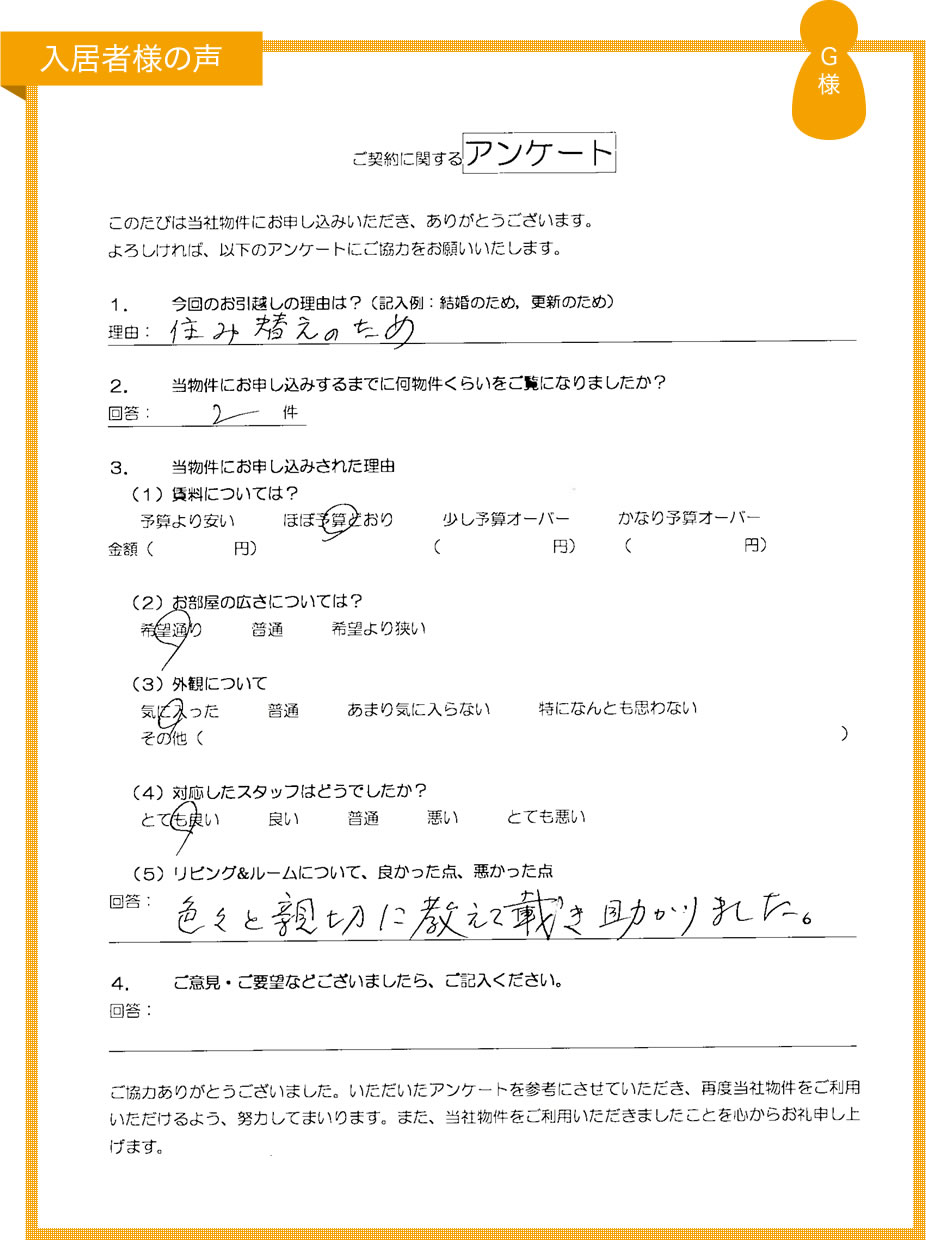 入居者様の声
G
様
ご契約に関するアンケート
このたびは当社物件にお申し込みいただき、ありがとうございます。
よろしければ、以下のアンケートにご協力をお願いいたします。
1. 今回のお引越しの理由は？（記入例：結婚のため，更新のため）
理由： 住み替えのため
2. 当物件にお申し込みするまでに何物件くらいをご覧になりましたか？
回答： 2 件
3. 当物件にお申し込みされた理由
（1）賃料については？
予算より安い ほぼ予算どおり 少し予算オーバー かなり予算オーバー
金額（ 円） （ 円） （ 円）
（2）お部屋の広さについては？
希望通り 普通 希望より狭い
（3）外観について
気に入った 普通 あまり気に入らない 特になんとも思わない
その他（ ）
（4）対応したスタッフはどうでしたか？
とても良い 良い 普通 悪い とても悪い
（5）リビング&ルームについて、良かった点、悪かった点
回答： 色々と親切に教えて戴き助かりました。
4. ご意見・ご要望などございましたら、ご記入ください。
回答：
ご協力ありがとうございました。いただいたアンケートを参考にさせていただき、再度当社物件をご利用
いただけるよう、努力してまいります。また、当社物件をご利用いただきましたことを心からお礼申し上
げます。